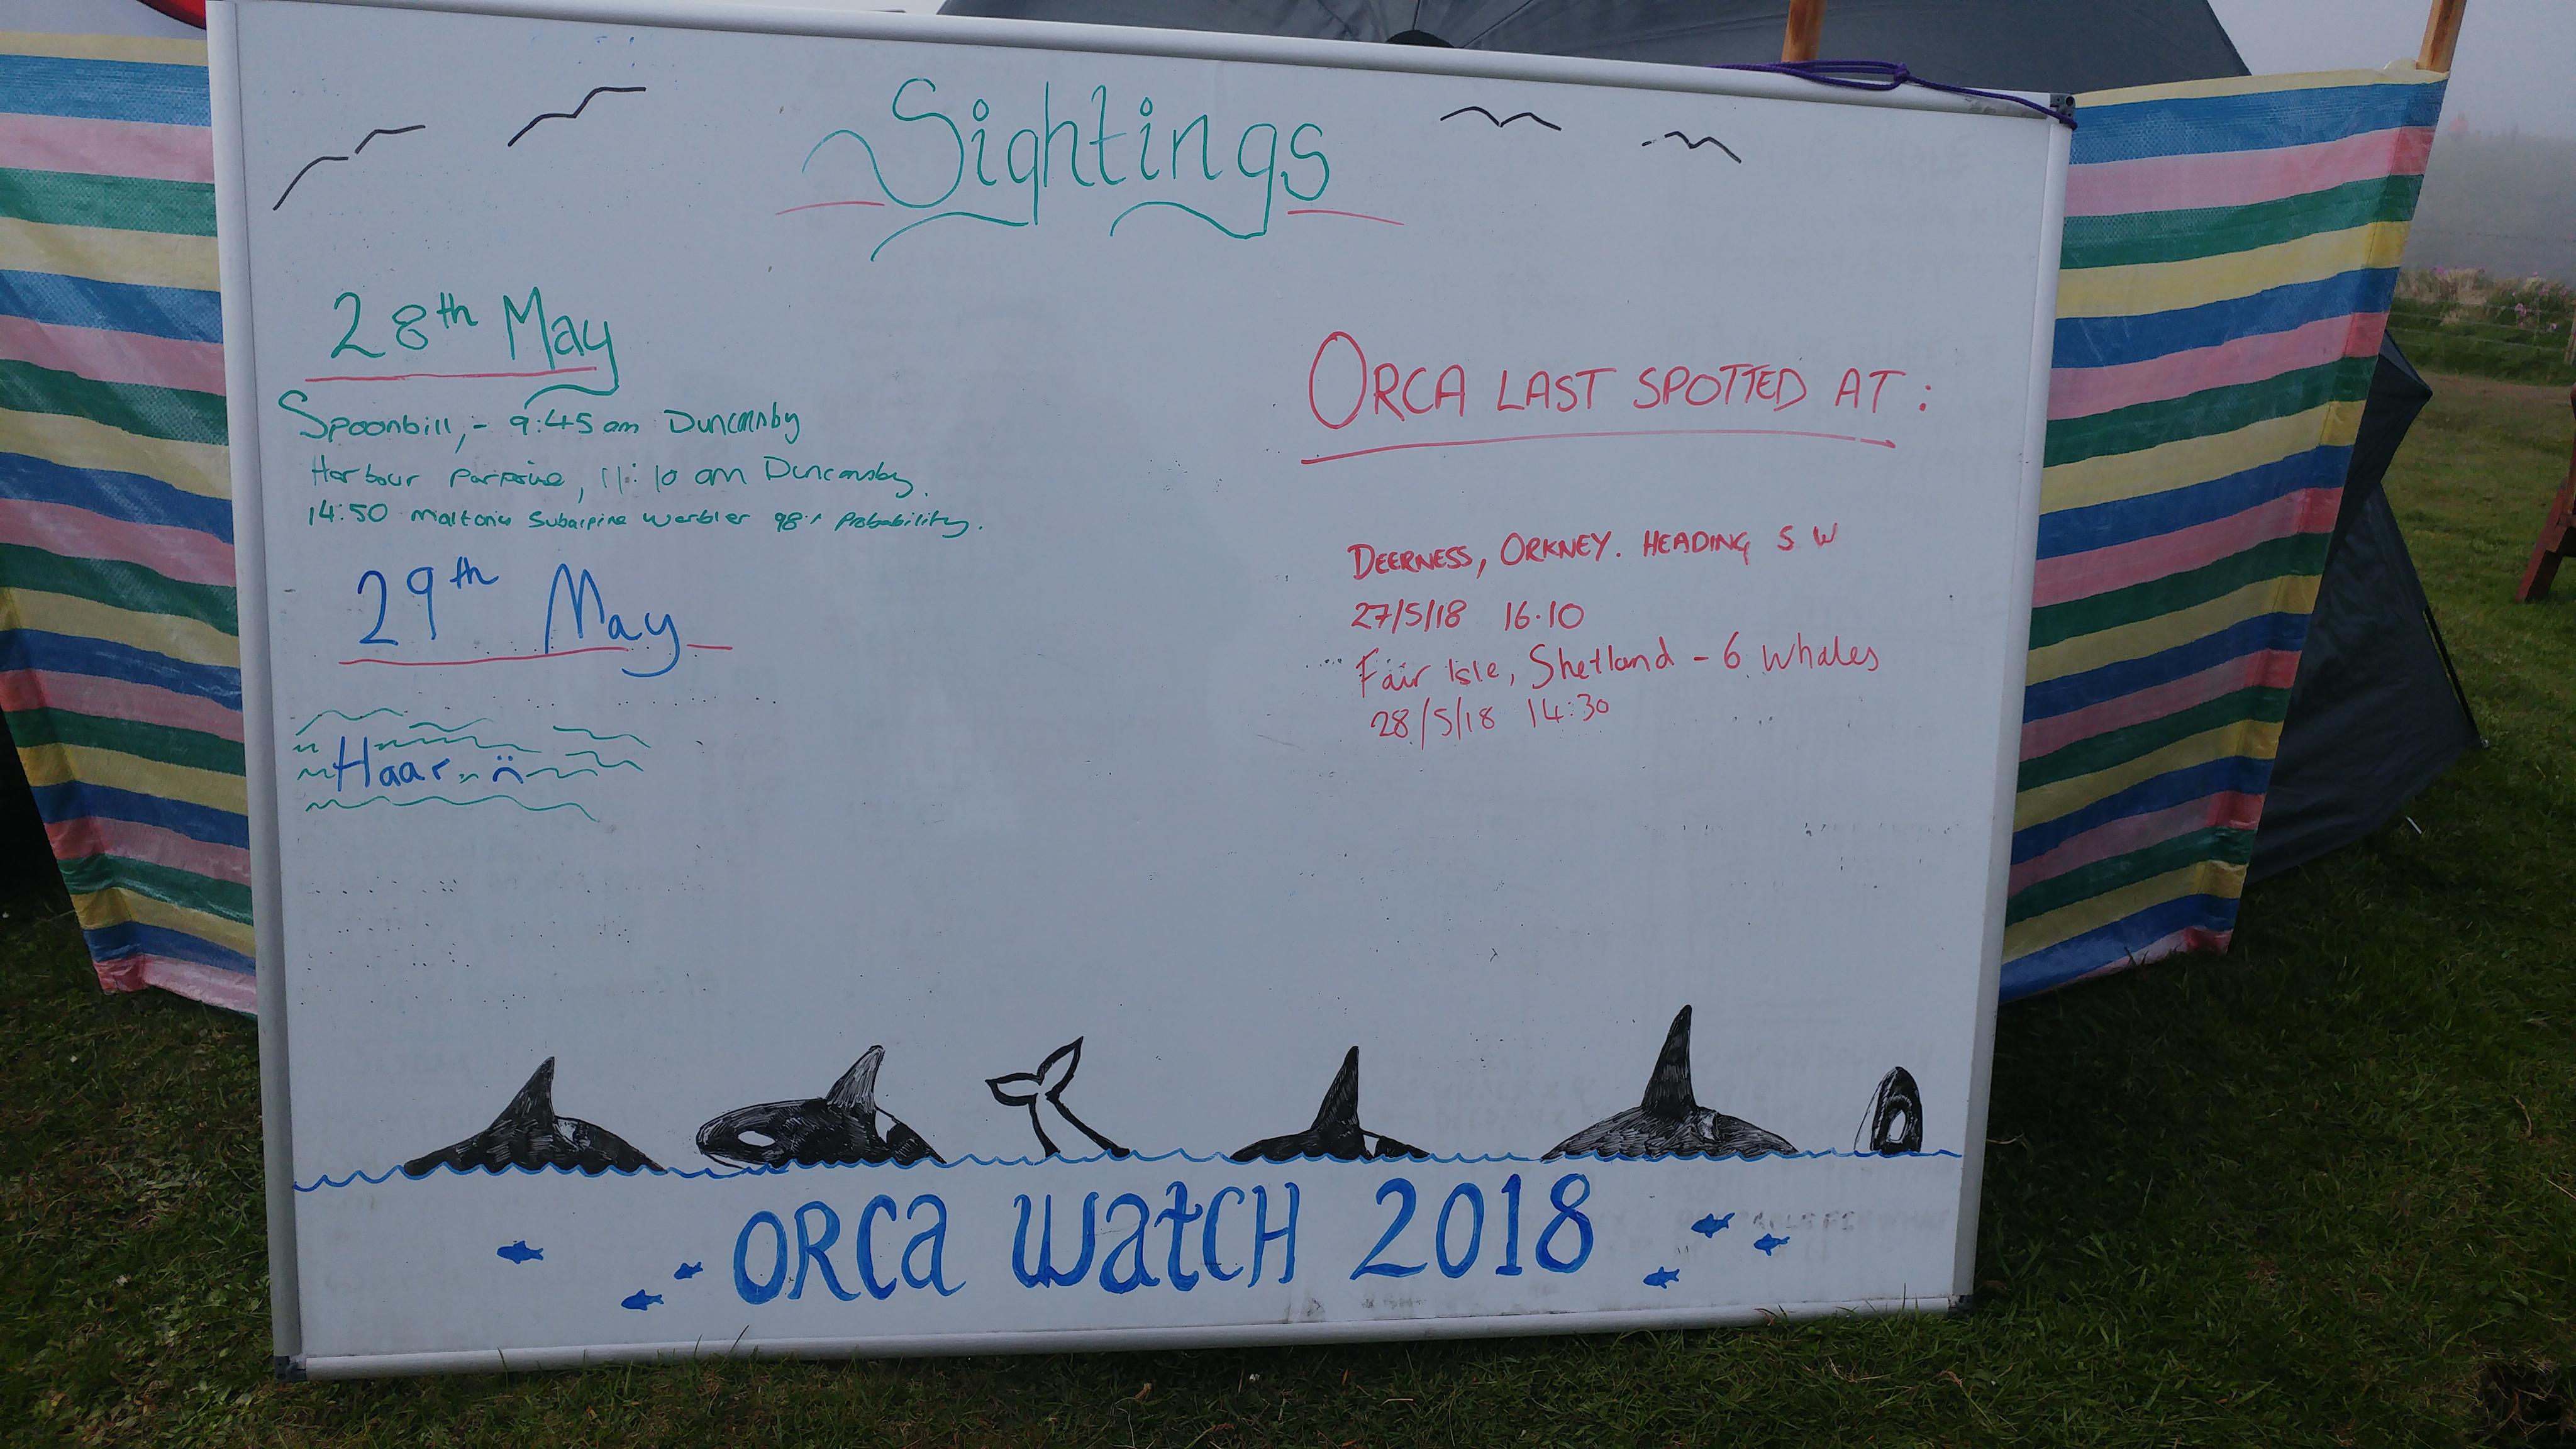 Sightings
28th May
Spoonbill,- 9:45am Duncansby
Harbour Porpoise, 11:10 am Duncansby.
14:50 Moltonis Subalpine Warbler 98% Probability.
29th May
Haar :(
ORCA LAST SPOTTED AT:
DEERNESS, ORKNEY. HEADING S W
27/5/18 16.10
Fair Isle, Shetland - 6 Whales
28/5/18 14:30
ORCa WatCH 2018